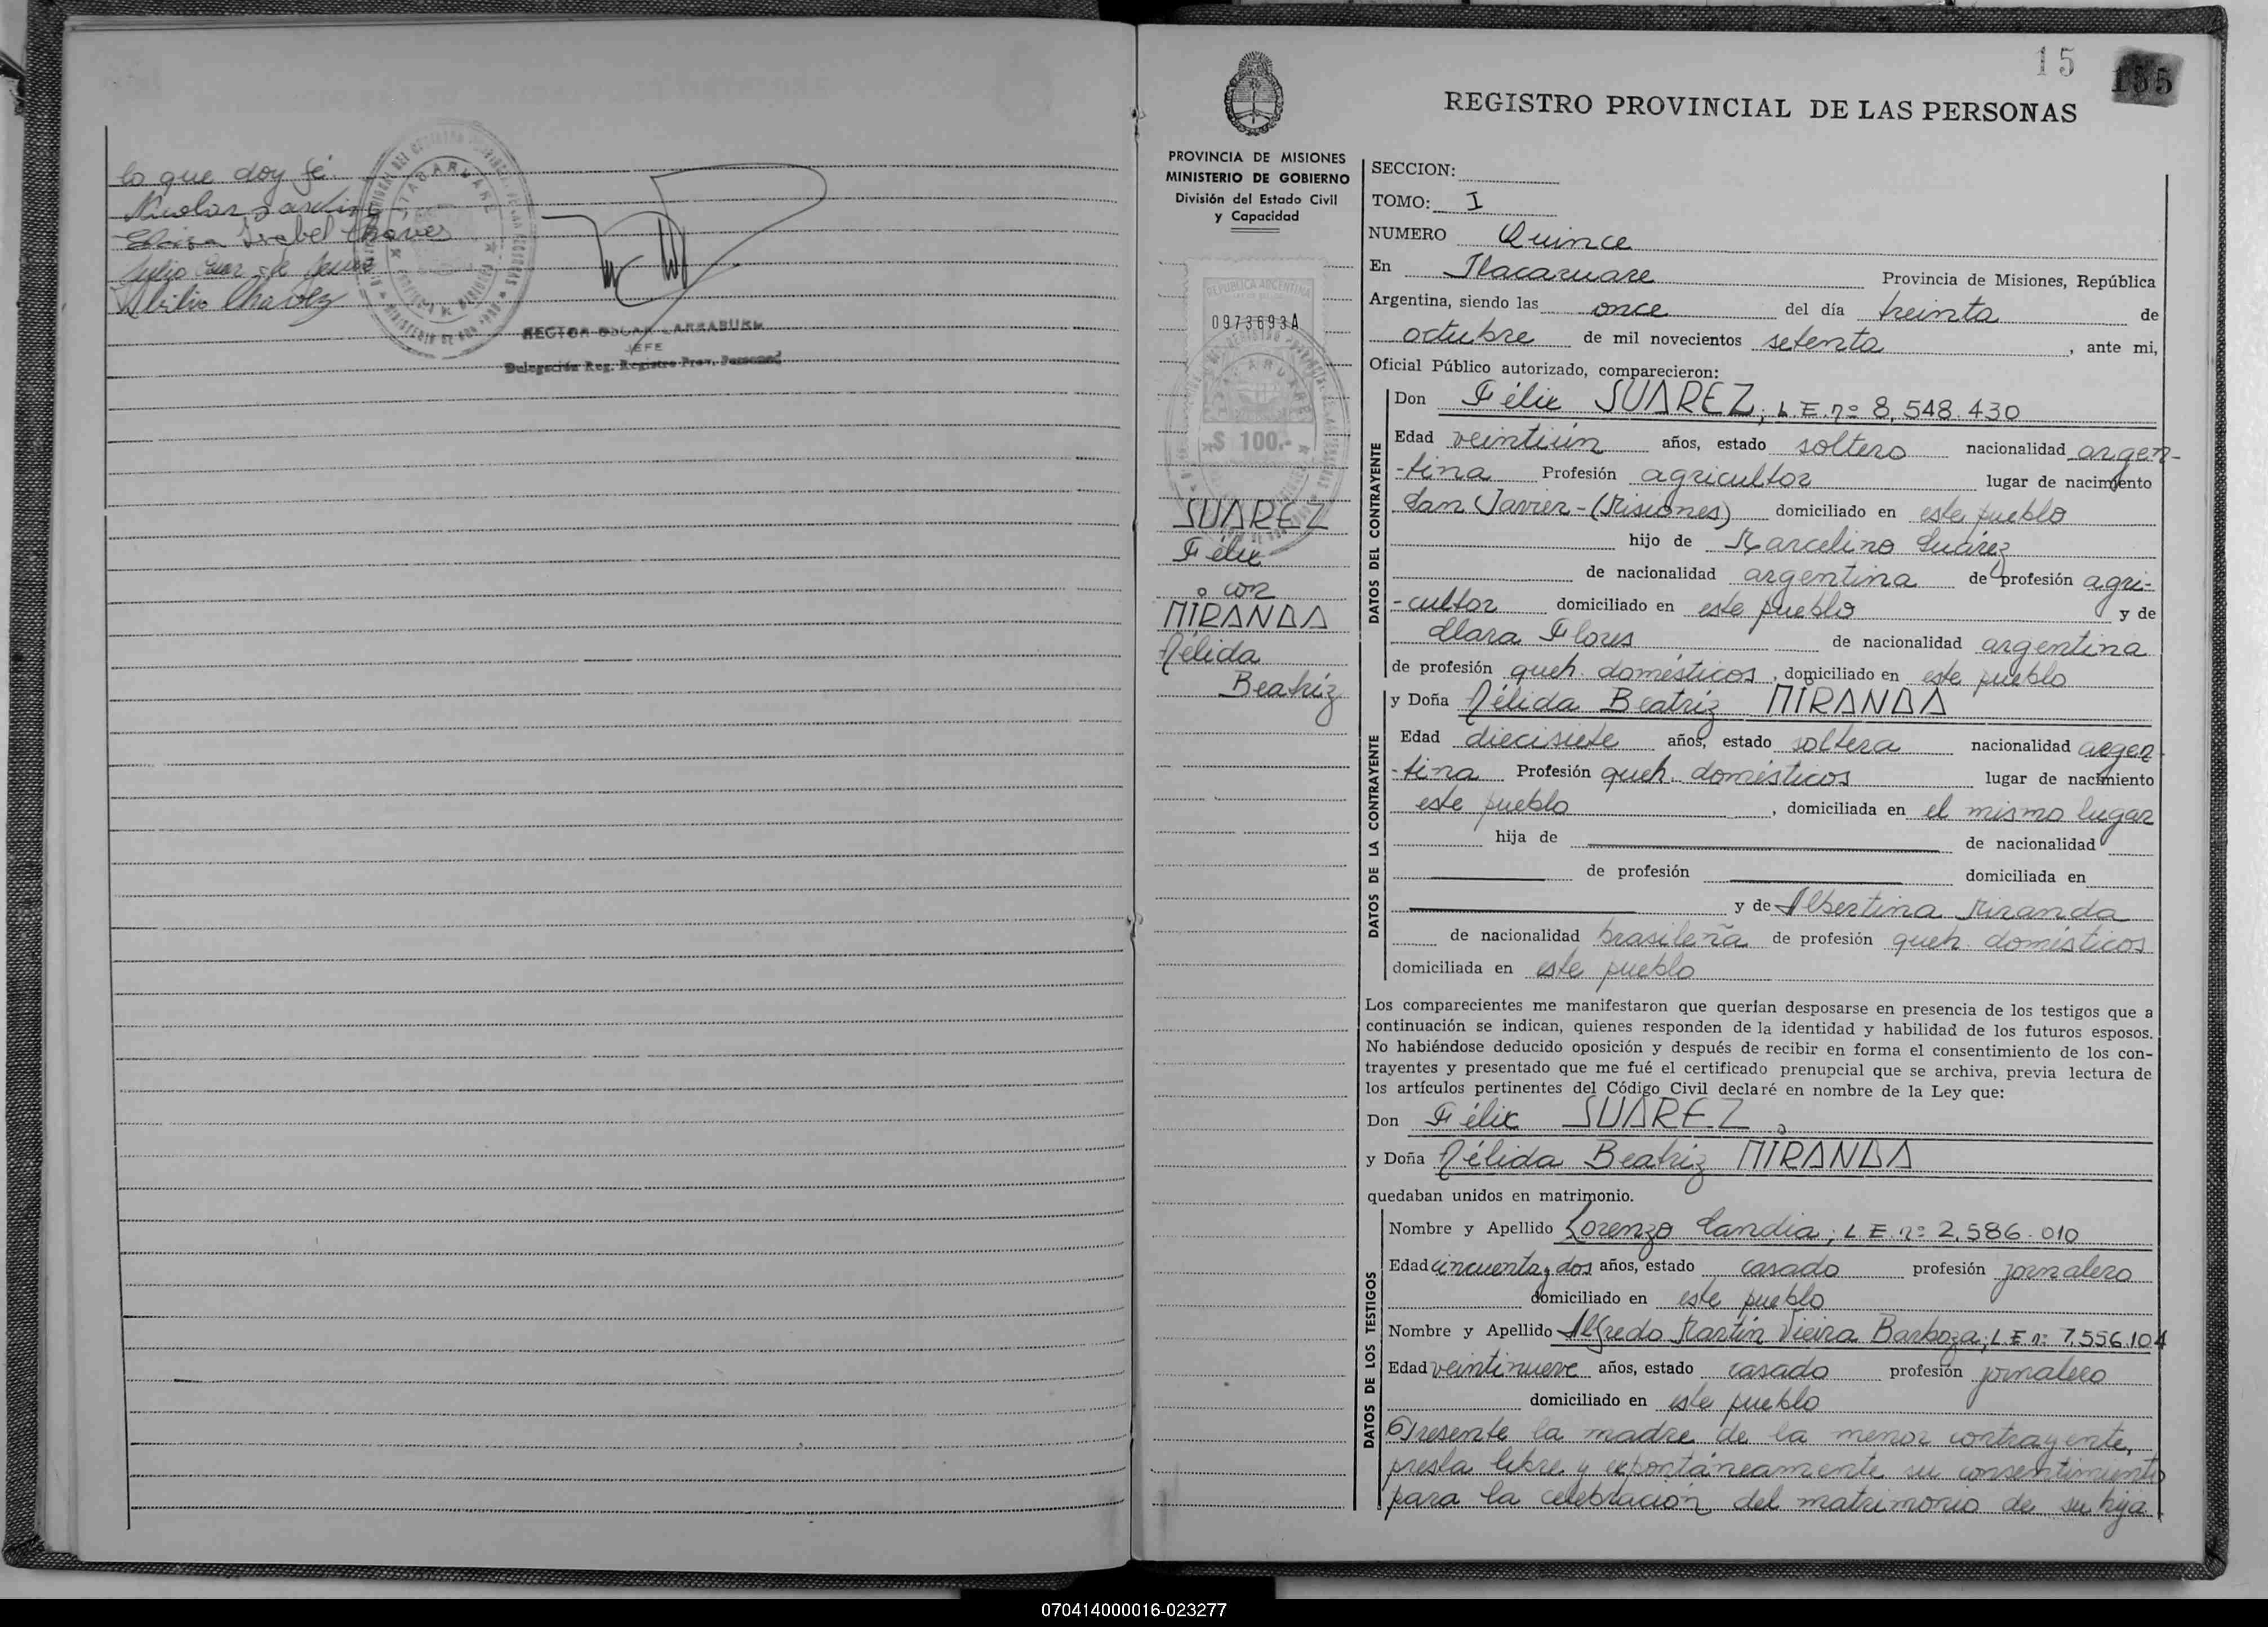 lo que doy fé.
Elvira Isabel Chaves
Abilio Chavez
HECTOR OSCAR LARRABURE
JEFE
Delegación Reg. Registro Prov. Personas
15
155
REGISTRO PROVINCIAL DE LAS PERSONAS
PROVINCIA DE MISIONES
MINISTERIO DE GOBIERNO
División del Estado Civil
y Capacidad
REPUBLICA ARGENTINA
0973693A
$ 100.-
SUAREZ
Félix
con
MIRANDA
Nélida
Beatriz
SECCION:
TOMO: I
NUMERO Quince
En Itacaruare Provincia de Misiones, República
Argentina, siendo las once del día treinta de
octubre de mil novecientos setenta, ante mi,
Oficial Público autorizado, comparecieron:
DATOS DEL CONTRAYENTE
Don Félix SUAREZ; L.E. nº 8,548.430
Edad veintiún años, estado soltero nacionalidad argen-
-tina Profesión agricultor lugar de nacimiento
San Javier-(Misiones) domiciliado en este pueblo
hijo de Marcelino Suárez
de nacionalidad argentina de profesión agri-
-cultor domiciliado en este pueblo y de
Clara Flores de nacionalidad argentina
de profesión queh. domésticos, domiciliado en este pueblo
DATOS DE LA CONTRAYENTE
y Doña Nélida Beatriz MIRANDA
Edad diecisiete años, estado soltera nacionalidad argen
-tina Profesión queh. domésticos lugar de nacimiento
este pueblo, domiciliada en el mismo lugar
hija de de nacionalidad
de profesión domiciliada en
y de Albertina Miranda
de nacionalidad brasileña de profesión queh. domésticos
domiciliada en este pueblo
Los comparecientes me manifestaron que querían desposarse en presencia de los testigos que a
continuación se indican, quienes responden de la identidad y habilidad de los futuros esposos.
No habiéndose deducido oposición y después de recibir en forma el consentimiento de los con-
trayentes y presentado que me fué el certificado prenupcial que se archiva, previa lectura de
los artículos pertinentes del Código Civil declaré en nombre de la Ley que:
Don Félix SUAREZ
y Doña Nélida Beatriz MIRANDA
quedaban unidos en matrimonio.
DATOS DE LOS TESTIGOS
Nombre y Apellido Lorenzo Candia; L.E. nº 2,586.010
Edad cincuenta y dos años, estado casado profesión jornalero
domiciliado en este pueblo
Nombre y Apellido Alfredo Martín Vieira Barboza; L.E nº 7.556.104
Edad veintinueve años, estado casado profesión jornalero
domiciliado en este pueblo
Presente la madre de la menor contrayente,
presta libre y expontáneamente su consentimiento
para la celebración del matrimonio de su hija
070414000016-023277